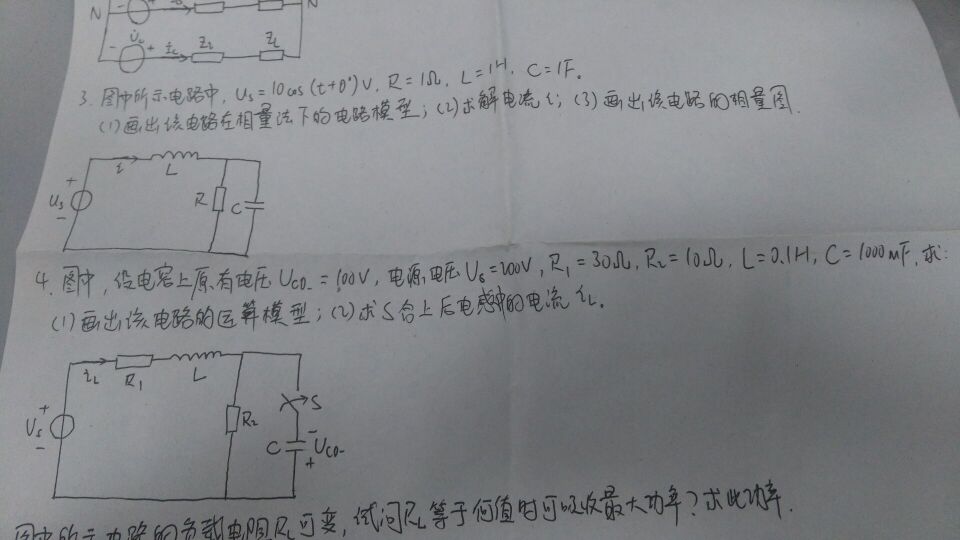 N
N
Z₂
Z_L
3. 图中所示电路中, Us=10cos(t+0°)V, R=1Ω, L=1H, C=1F。
(1)画出该电路在相量法下的电路模型;(2)求解电流i;(3)画出该电路的相量图.
i
L
+
Us
-
R
C
4. 图中,设电容上原有电压Uco-=100V,电源电压Us=200V,R₁=30Ω,R₂=10Ω,L=0.1H,C=1000mF,求:
(1)画出该电路的运算模型;(2)求S合上后电感中的电流iL。
iL
R₁
L
+
Us
-
R₂
S
C
-
Uco-
+
图中所示电路的负载电阻RL可变,试问RL等于何值时可吸收最大功率?求此功率.